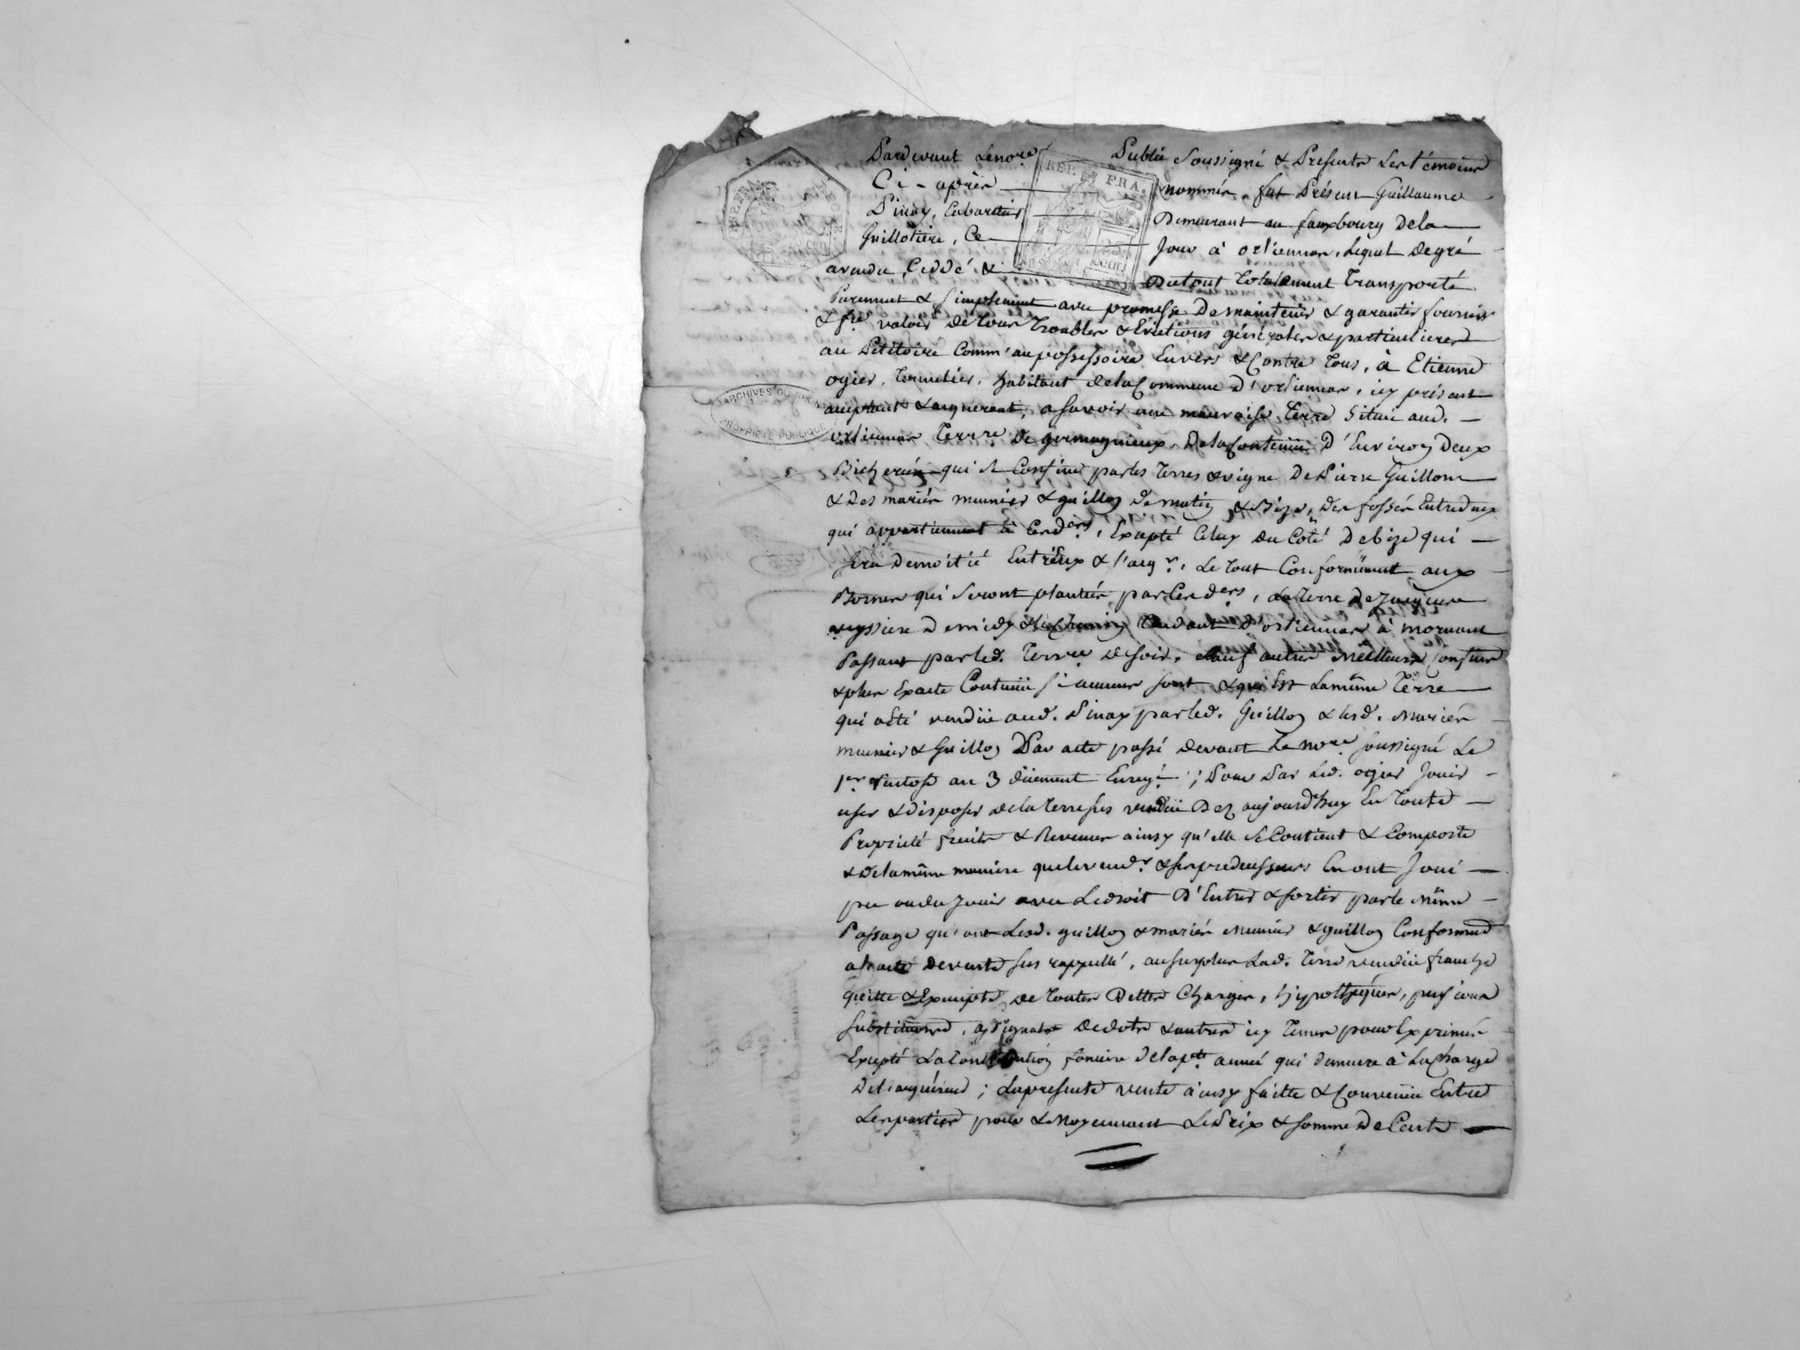 Pardevant Le no.re Public Soussigné & Presents Les témoins
Ci-après nommés, fut Présent Guillaume
Pinay, Cabaretier Demeurant au fauxbourg De la
Guillotière, Ce Jour à orliennas, Lequel De gré
a vendu, Ceddé & Du tout Totalement Transporté
Purement & Simplement avec promesse De maintenir & garantir fournir
& f.re valoir de tous Troubles & Evictions générales & particulieres
au Pétitoire Comm'au possessoire Envers & Contre Tous, à Etienne
ogier, habitant de la Commune d'orliennas, icy présent
acceptant & acquerant, a Savoir une mauvaise Terre Située aud.
orliennas Terre De De la Contenüe D'Environ Deux
Bicherées qui Se Confine par les Terres & vigne De Pierre Guillon
& Des mariés meunier & guillon De matin & Bize, Des fossés Entredeux
qui appartiennent à Ces d.ers, Excepté Celuy Du Côté De bize qui
Sera De moitié Entr'Eux & l'acq.r, Le Tout Conformément aux
Bornes qui Seront plantées par Ces d.ers, La Terre De
De midy & Le Chemin Tendant d'orliennas à mornant
Passant par led. Terre de Soir, Sauf autres meilleurs Confins
& plus Exacte Contenüe Si aucuns Sont & qui Est La même Terre
qui a Eté vendüe aud. Pinay par led. Guillon & lesd. Mariés
meunier & Guillon Par acte passé devant Le no.re Soussigné Le
1.er Ventose an 3 düement Enreg.é; Pour Par Led. ogier Jouir
user & disposer de la Terre Sus vendüe Dez aujourd'huy En Toute
Propriété fruits & Revenus ainsy qu'elle Se Contient & Comporte
& De la même manière que le vend.r & Ses predecesseurs En ont Joui
pu ou du Jouir avec Le droit D'Entrer & Sortir par le Même
Passage qu'ont Lesd. guillon & mariés Meunier & guillon Conformé
a l'acte de vente Sus rappellé, au Surplus Lad. Terre vendüe franche
quitte & Exempte de Toutes Dettes Charges, hypothèques, pensions
Substitutions, De dote & autres icy Tenus pour Exprimés
Excepté La Contribution fonciere de la p.te année qui demeure à La Charge
De l'acquéreur; La presente vente ainsy faitte & Convenüe Entre
Les parties pour & Moyennant Le Prix & Somme De Cent
REP. FRA.
ARCHIVES DU RHONE
PROPRIÉTÉ PUBLIQUE